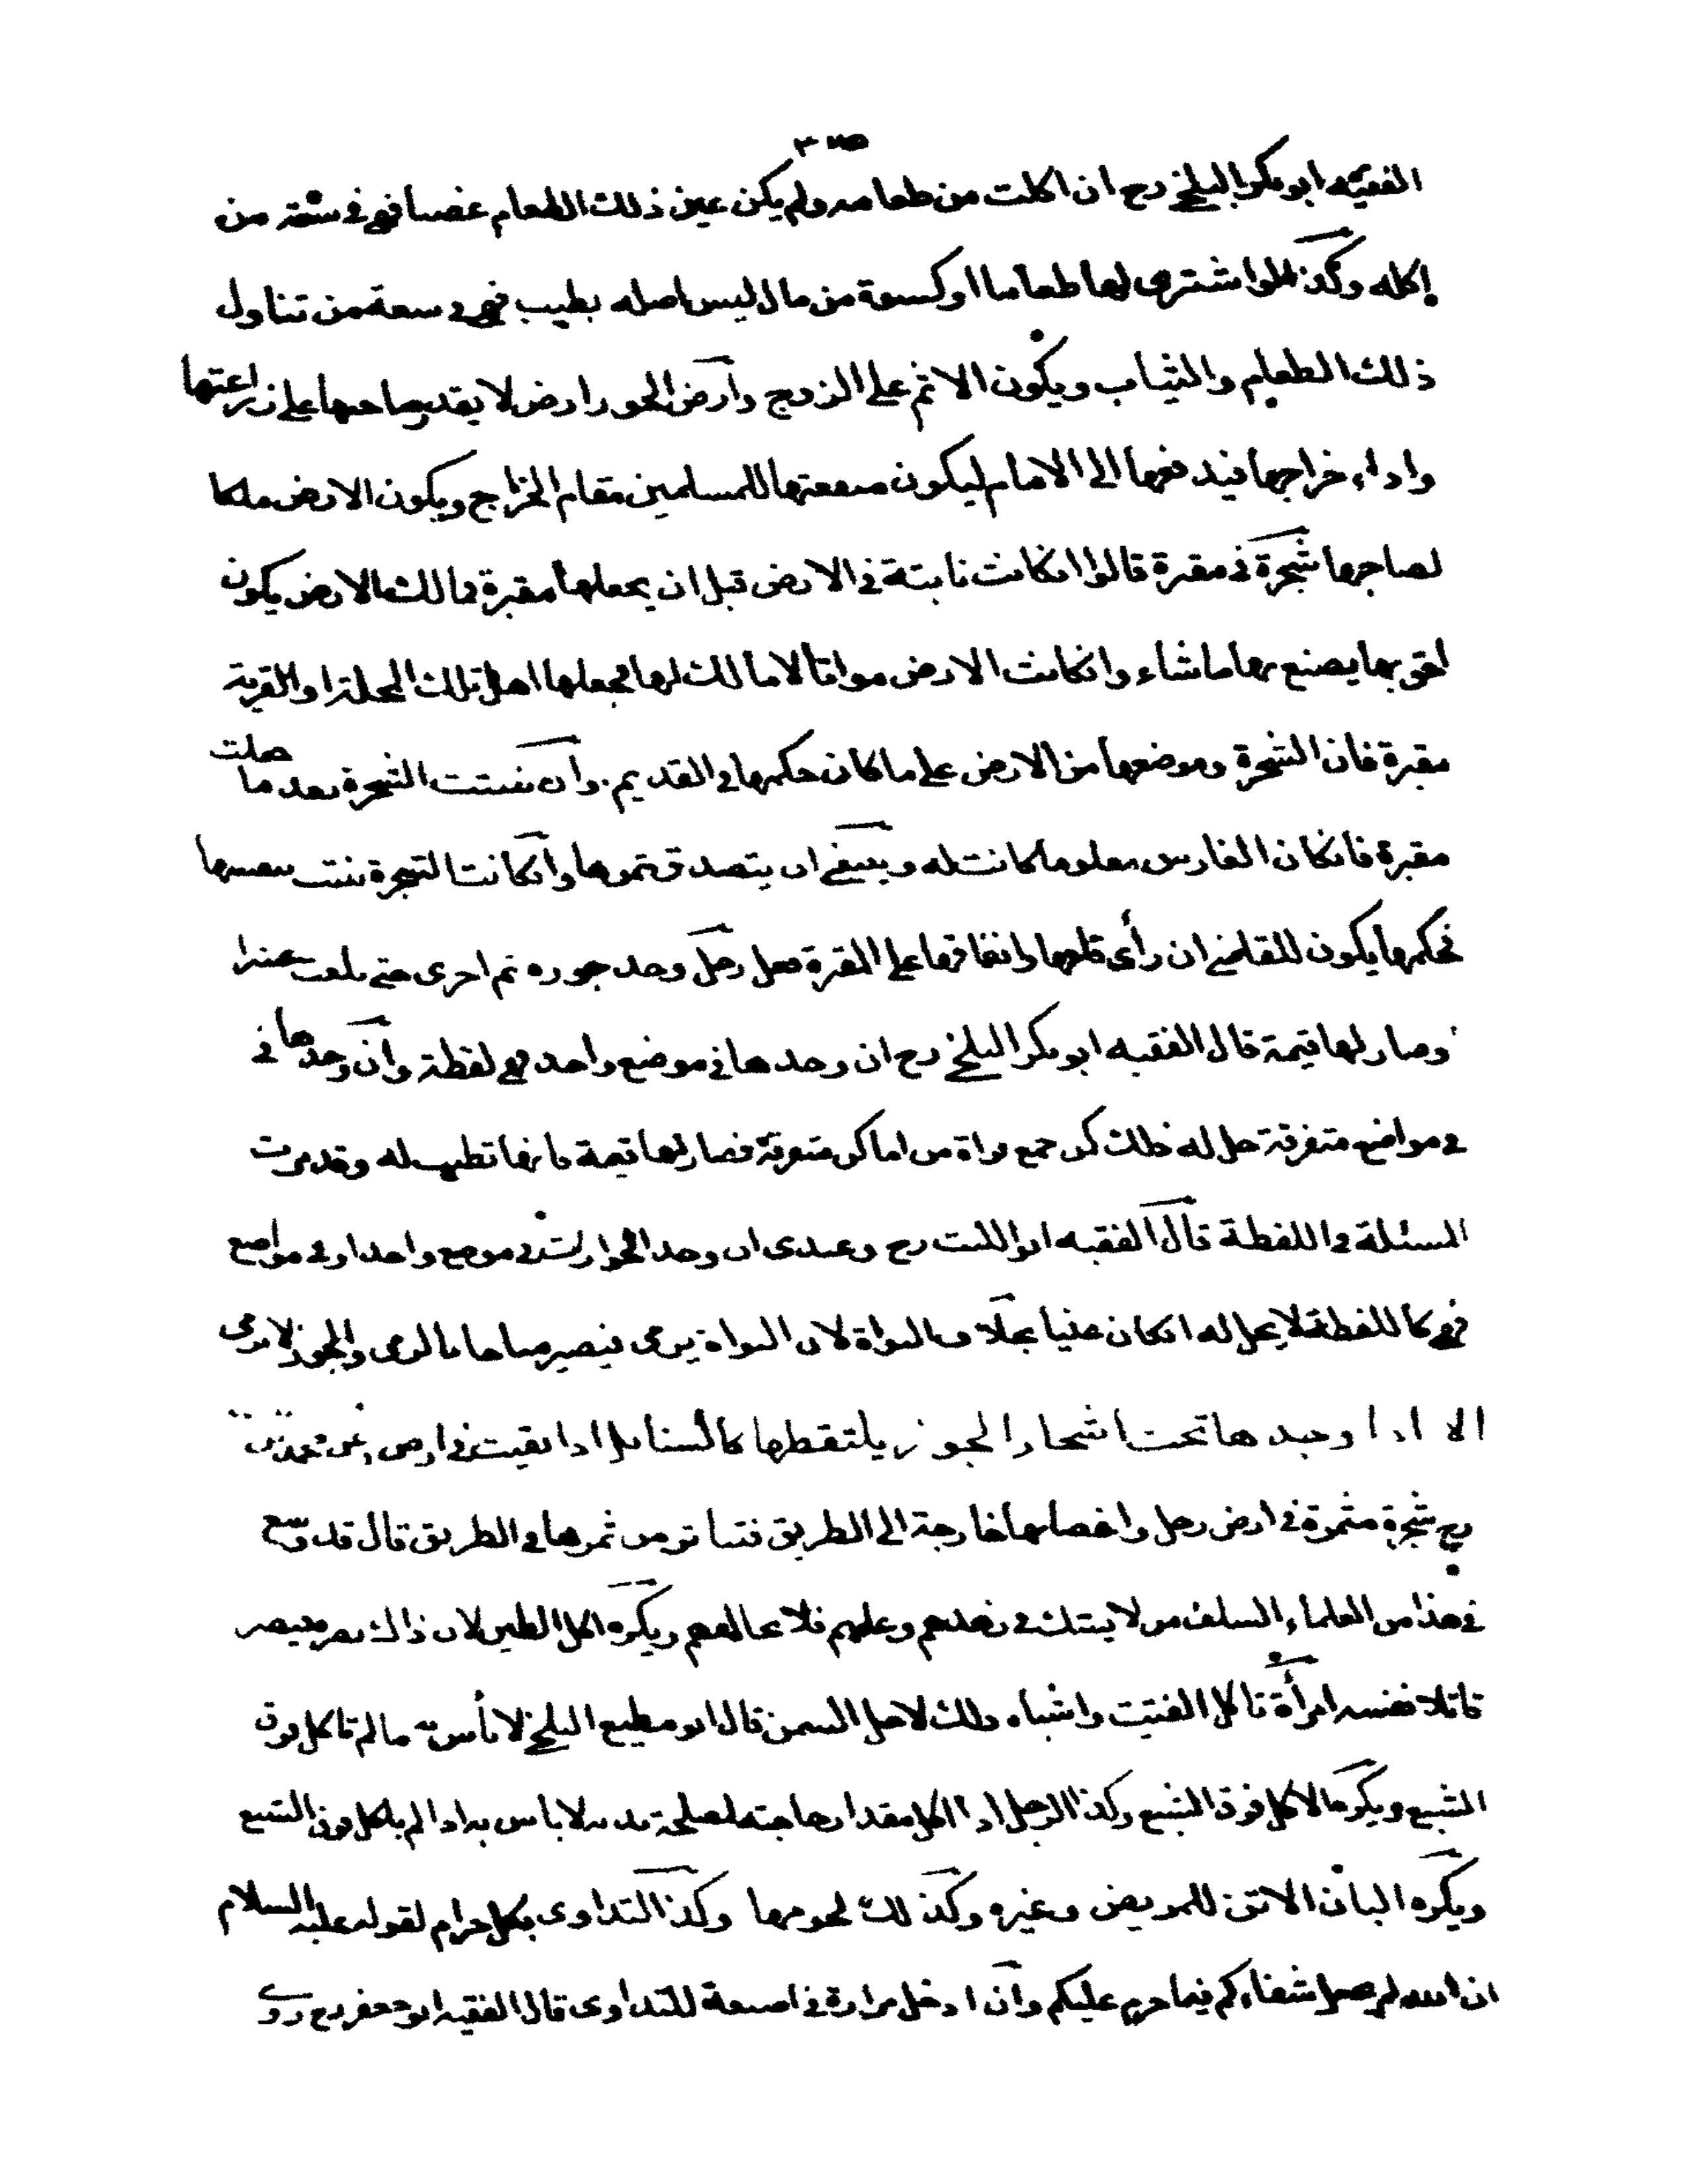 الفقيه ابو بكر البلخي رح ان اكلت من طعامه ولم يكن عين ذلك الطعام غصبا فهي في سعة من
اكله وكذا لو اشترى لها طعاما او كسوة من مال ليس اصله بطيب فهي في سعة من تناول
ذلك الطعام والثياب ويكون الاثم على الزوج وارض الحور ارض لا يقدر صاحبها على زراعتها
واداء خراجها فيدفعها الى الامام ليكون منفعتها للمسلمين مقام الخراج ويكون الارض ملكا
لصاحبها شجرة في مقبرة قالوا انكانت نابتة في الارض قبل ان يجعلها مقبرة فمالك الارض يكون
احق بها يصنع بها ما شاء وانكانت الارض مواتا لا مالك لها فجعلها اهل تلك المحلة او القرية
مقبرة فان الشجرة وموضعها من الارض على ما كان حكمها في القديم وان نبتت الشجرة بعد ما جعلت
مقبرة فانكان الغارس معلوما كانت له وينبغي ان يتصدق بثمرها وانكانت الشجرة نبتت بنفسها
فحكمها يكون للقاضي ان رأى قلعها وانفاقها على المقبرة فعل رجل وجد جوزه ثم اخرى حتى بلغت عشرا
وصار لها قيمة قال الفقيه ابو بكر البلخي رح ان وجدها في موضع واحد فهي لقطة وان وجدها في
في مواضع متفرقة حل له ذلك كمن جمع نواة من اماكن متفرقة فصار لها قيمة فانها تطيب له وقد مرت
المسئلة في اللقطة قال الفقيه ابو الليث رح وعندي ان وجد الجوازات في موضع واحد او في مواضع
فهو كاللقطة لا يحل له انكان غنيا بخلاف النواة لان النواة يرمى فيصير مباحا بالرمي والجوز لا يرمى
الا اذا وجدها تحت اشجار الجوز يلتقطها كالسنابل اذا بقيت في ارض عن محمد بن
رح شجرة مثمرة في ارض رجل واغصانها خارجة الى الطريق فتناثر من ثمرها في الطريق قال قد وسع
في هذا من العلماء السلف من لا يشك في زهدهم وعلمهم فلا نخالفهم ويكره اكل الطين لان ذلك يضر فيصير
قاتلا نفسه امرأة تاكل الفتيت واشباه ذلك لاجل السمن قال ابو مطيع البلخي لا بأس به ما لم تاكل فوق
الشبع ويكره الاكل فوق الشبع وكذا الرجل اذا اكل مقدار حاجته لمصلحة بدنه لا باس به اذا لم ياكل فوق الشبع
ويكره البان الاتن للمريض وغيره وكذلك لحومها وكذا التداوى بكل حرام لقوله عليه السلام
ان الله لم يجعل شفاءكم فيما حرم عليكم وان ادخل مرارة في اصبعة للتداوى قال الفقيه ابو جعفر رح روى